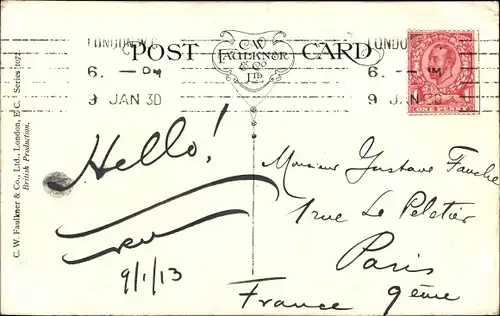 LONDON.W.C.
6. - PM
9 JAN 3D
POST CARD
C.W.
FAULKNER
& CO
LTD
LONDON
6. - PM
9 JAN
ONE PENNY
C. W. Faulkner & Co., Ltd., London, E.C. Series 1072.
British Production.
Hello!
9/1/13
Monsieur Gustave Fauche
1 rue Le Peletier
Paris
France 9ème